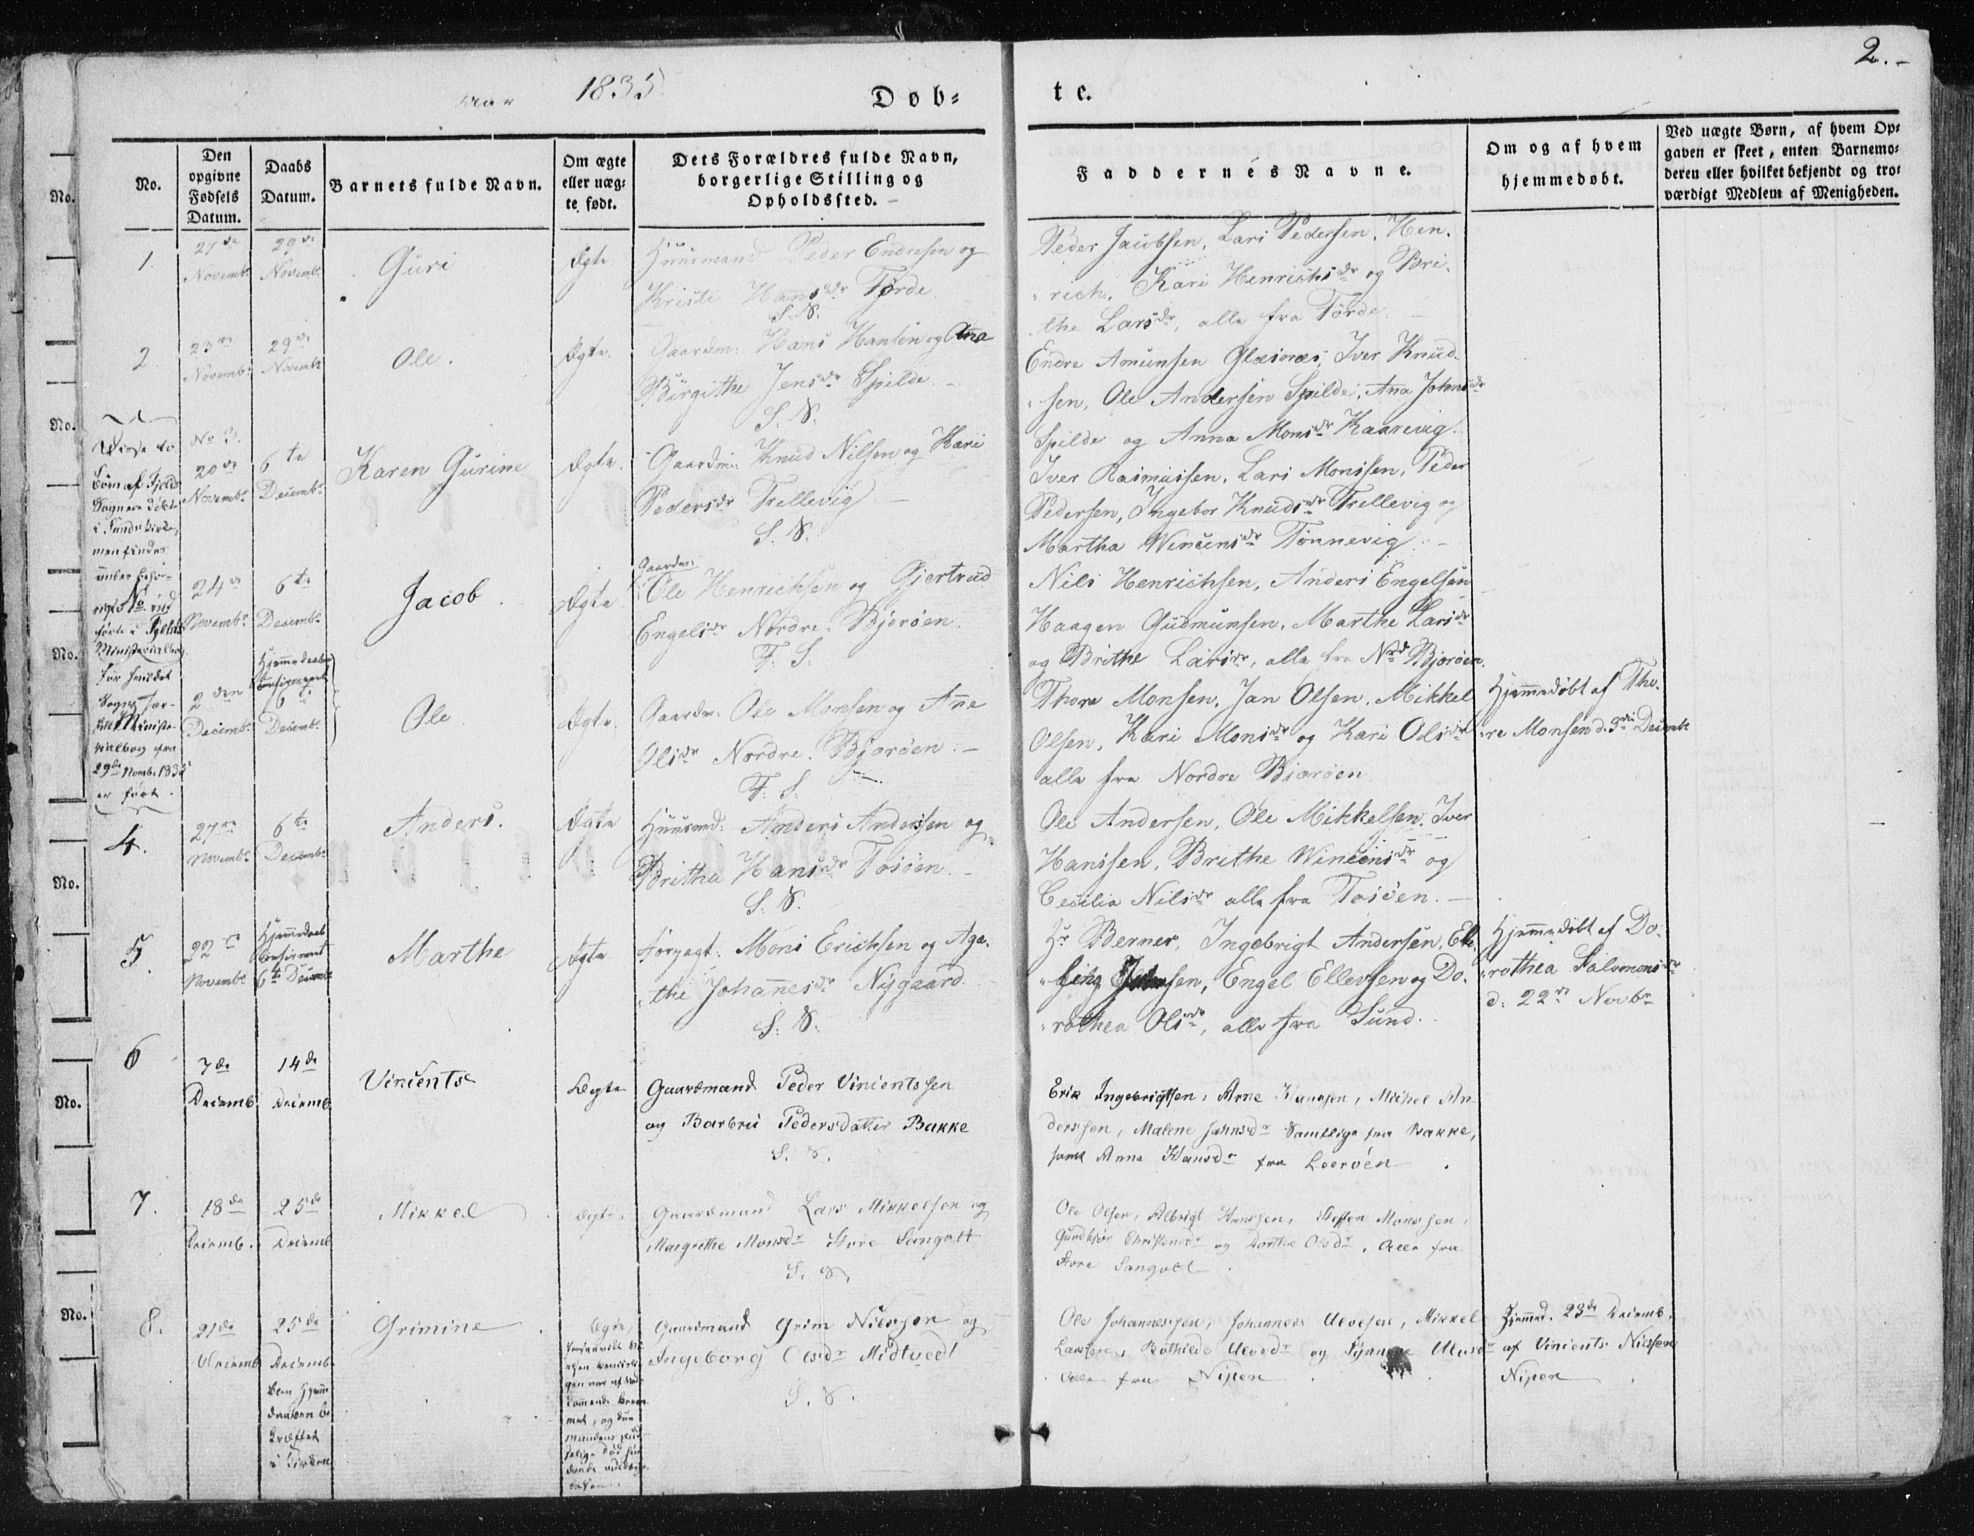 Aar 1835
Døb-
te.
2.
No.
Den opgivne Fødsels Datum.
Daabs Datum.
Barnets fulde Navn.
Om ægte eller uæg-te født.
Dets Forældres fulde Navn, borgerlige Stilling og Opholdssted.
Faddernes Navne.
Om og af hvem hjemmedøbt.
Ved uægte Børn, af hvem Op-
gaven er skeet, enten Barnemo-
deren eller hvilket bekjendt og tro-
værdigt Medlem af Menigheden.
1.
Novembr
29de Novembr
Guri
Ægte
Huusmand Peder Endresen og
Kristi Hansdr Førde
S. S.
Peder Jacobsen, Lars Pedersen, Hen-
rich, Kari Henrichsdr og Bri-
the Larsdr, alle fra Førde.
2.
23de Novembr
29de Novembr
Ole.
Ægte.
Gaardm: Hans Hansen og Ane
Birgithe Jensdr Spilde.
S. S.
Endre Amunsen Glæsnæs, Iver Knud-
sen, Ole Andersen Spilde, Ana Johnsdr
Spilde og Anna Monsdr Kaarevig.
No 3.
20de Novembr
6te Decembr
Karen Gurine
Ægte.
Gaardm: Knud Nilsen og Kari
Pedersdr Trellevig
S. S.
Iver Rasmussen, Lars Monssen, Peder
Pedersen, Ingebor Knudsdr Trellevig og
Martha Wincensdr Tønnevig.
Disse to
Børn af Fjelds
Sogn ere døbte
i Sunds Kirke,
men findes
under behø-
rigt No ind-
førte i Fjelds
Ministerialbog
For Sundet
Sogn
Ministe-
rialbog fra
29de Novbr. 1835
er ført.
24de Novembr
6te Decembr
Jacob
Ægte.
Gaardm:
Ole Henrichsen og Gjertrud
Engelsdr Nordre Bjorøen.
F. S.
Nils Henrichsen, Anders Engelsen
Haagen Gudmunsen, Marthe Larsdr
og Brithe Larsdr, alle fra Nrd Bjorøen.
2den Decembr
Hjemmedaaben
Confirmeret
6te Decembr
Ole
Ægte.
Gaardm: Ole Monsen og Ane
Olsdr Nordre Bjorøen.
F. S.
Thore Monsen, Jan Olsen, Mikkel
Olsen, Kari Monsdr og Kari Olsdr
alle fra Nordre Bjorøen
Hjemmedøbt af Tho-
re Monsen d. 3die Decembr
4.
27de Novembr
6te Decembr
Anders.
Ægte
Huusmd: Anders Anderssen og
Brithe Hansdr Tosøen.
S. S.
Ole Andersen, Ole Mikkelsen, Iver
Hanssen, Brithe Wincensdr og
Cecilia Nilsdr alle fra Tosøen.
5.
22de Novembr
Hjemmedaab
Confirmeret
6te Decembr
Marthe
Ægte
Forpagt: Mons Erichsen og Aga-
the Johannesdr Nygaard
S. S.
Hr Berner, Ingebrigt Andersen, Elle-
Engel Ellevsen og Do-
rothea Olsdr, alle fra Sund.
Hjemmedøbt af Do-
rothea Salomonsdr
d: 22de Novbr
6
7de Decemb.
14de Decemb.
Vincents
Ægte
Gaardmand Peder Vincentssen
og Barbru Pedersdatter Bakke
S. S.
Erik Ingebrigtsen, Arne Hanssen, Mickel An-
derssen, Malene Johnsdr Samtlige fra Bakke,
samt Anna Hansdr fra Leerøen.
7.
18de Decemb.
25de Decemb.
Mikkel
Ægte.
Gaardmand Lars Mikkelsen og
Margrethe Monsdr Store Sangolt
S. S.
Ole Olsen, Albrigt Hanssen, Steffen Monssen,
Gundbjør Christensdr og Dorthe Olsdr. Alle fra
Store Sangolt.
8.
21de Decemb.
25de Decemb.
Grimine
Ægte,
Gaardmand Grim Nilssen og
Ingeborg Olsdr Midtvedt
S. S.
Ole Johannessen, Johannes Ulvesen, Mikkel
Larssen, Bothilde Ulvesdr og Synneve Ulvesdr
Alle fra Nipen
Hjemmd. 23de Decemb.
af Vincents Nilssen
Nipen